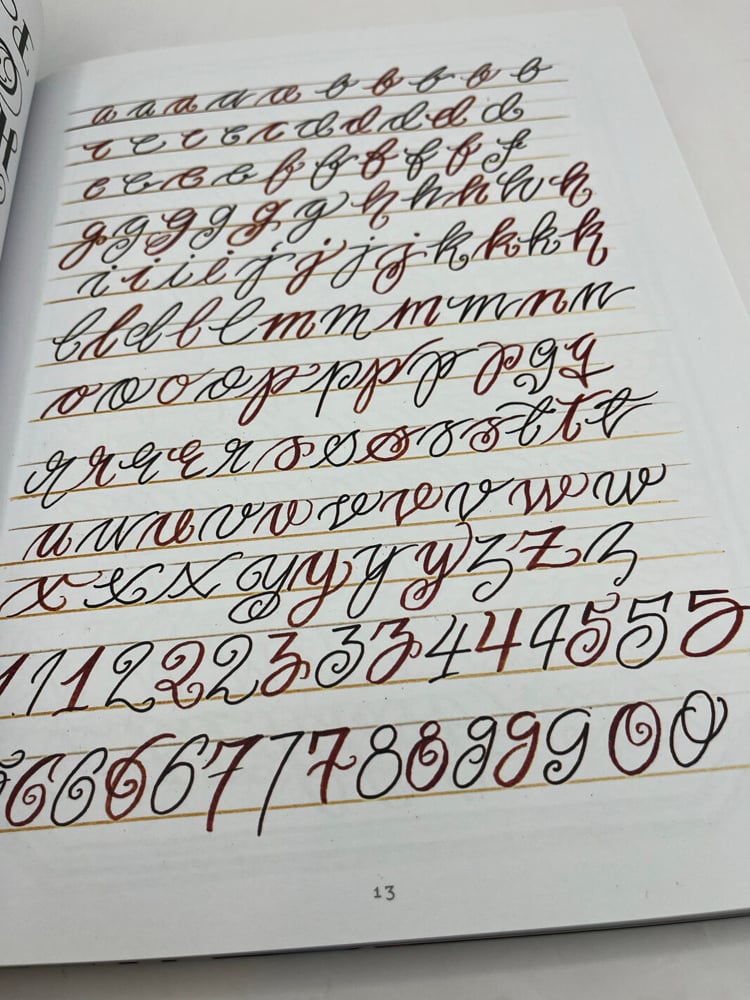 a a a a a b b b b b
c c c c c d d d d d
e e e e f f f f f f
g g g g g g h h h h h
i i i i j j j j k k k k
l l l l l m m m m n n
o o o o p p p p p q q
r r r r r s s s s s t t t
u u u v v v v v w w
x x x y y y y z z z
1 1 1 2 2 2 3 3 3 4 4 4 5 5 5
6 6 6 6 7 7 7 8 8 9 9 9 0 0
13